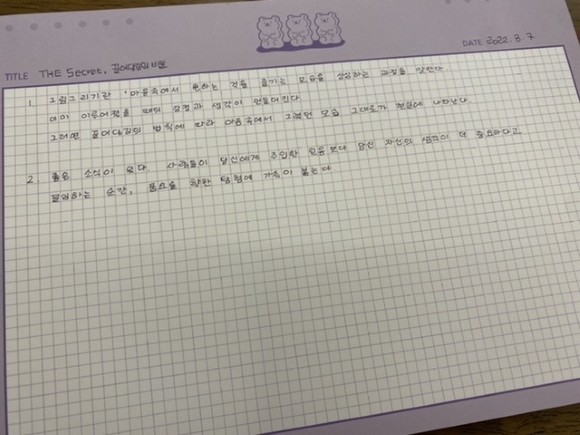 TITLE THE Secret, 끌어당김의 비밀
DATE 2022. 8. 7
1. 그림그리기란 '마음속에서 원하는 것을 즐기는 모습을 상상하는 과정을 말한다
이미 이루어졌을 때의 감정과 생각이 만들어진다
그러면 끌어당김의 법칙에 따라 마음속에서 그렸던 모습 그대로가 현실에 나타난다
2. 좋은 소식이 있다. 사람들이 당신에게 주입한 믿음보다 당신 자신의 생각이 더 중요하다고
결정하는 순간, 풍요를 향한 탐험에 가속이 붙는다